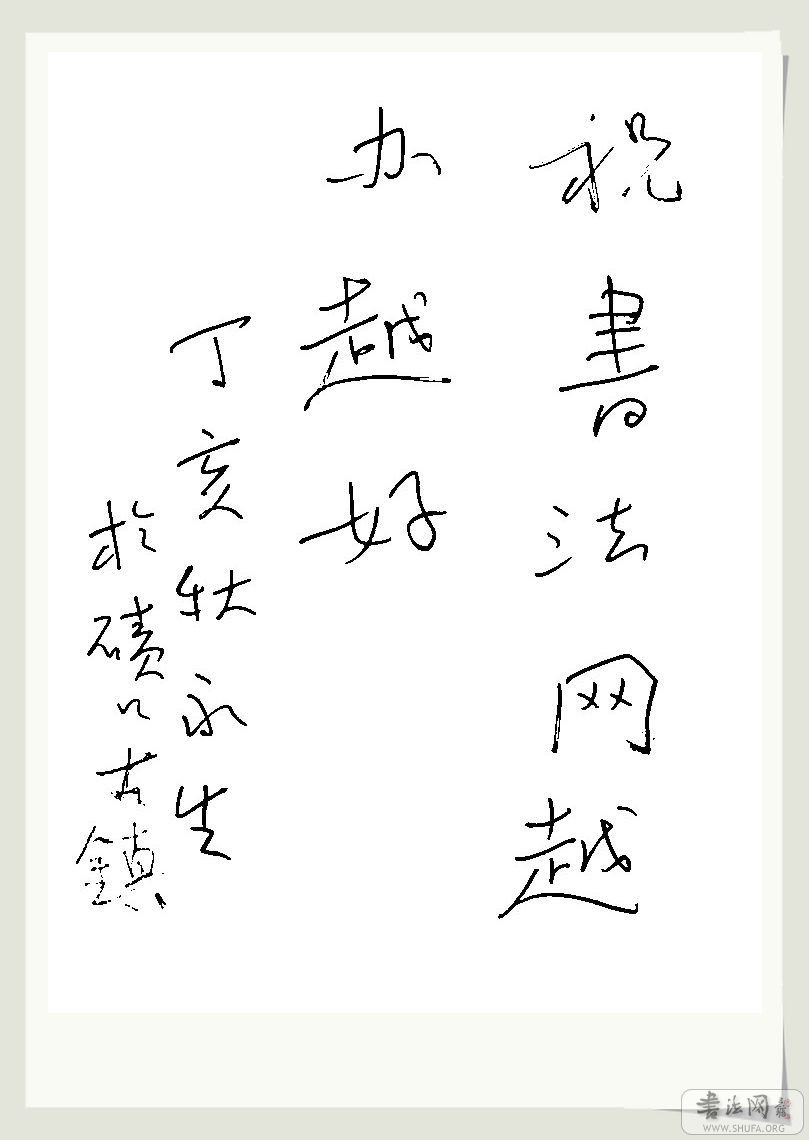 祝書法网越
办越好
丁亥秋永生
於磧口古鎮
書法网
WWW.SHUFA.ORG